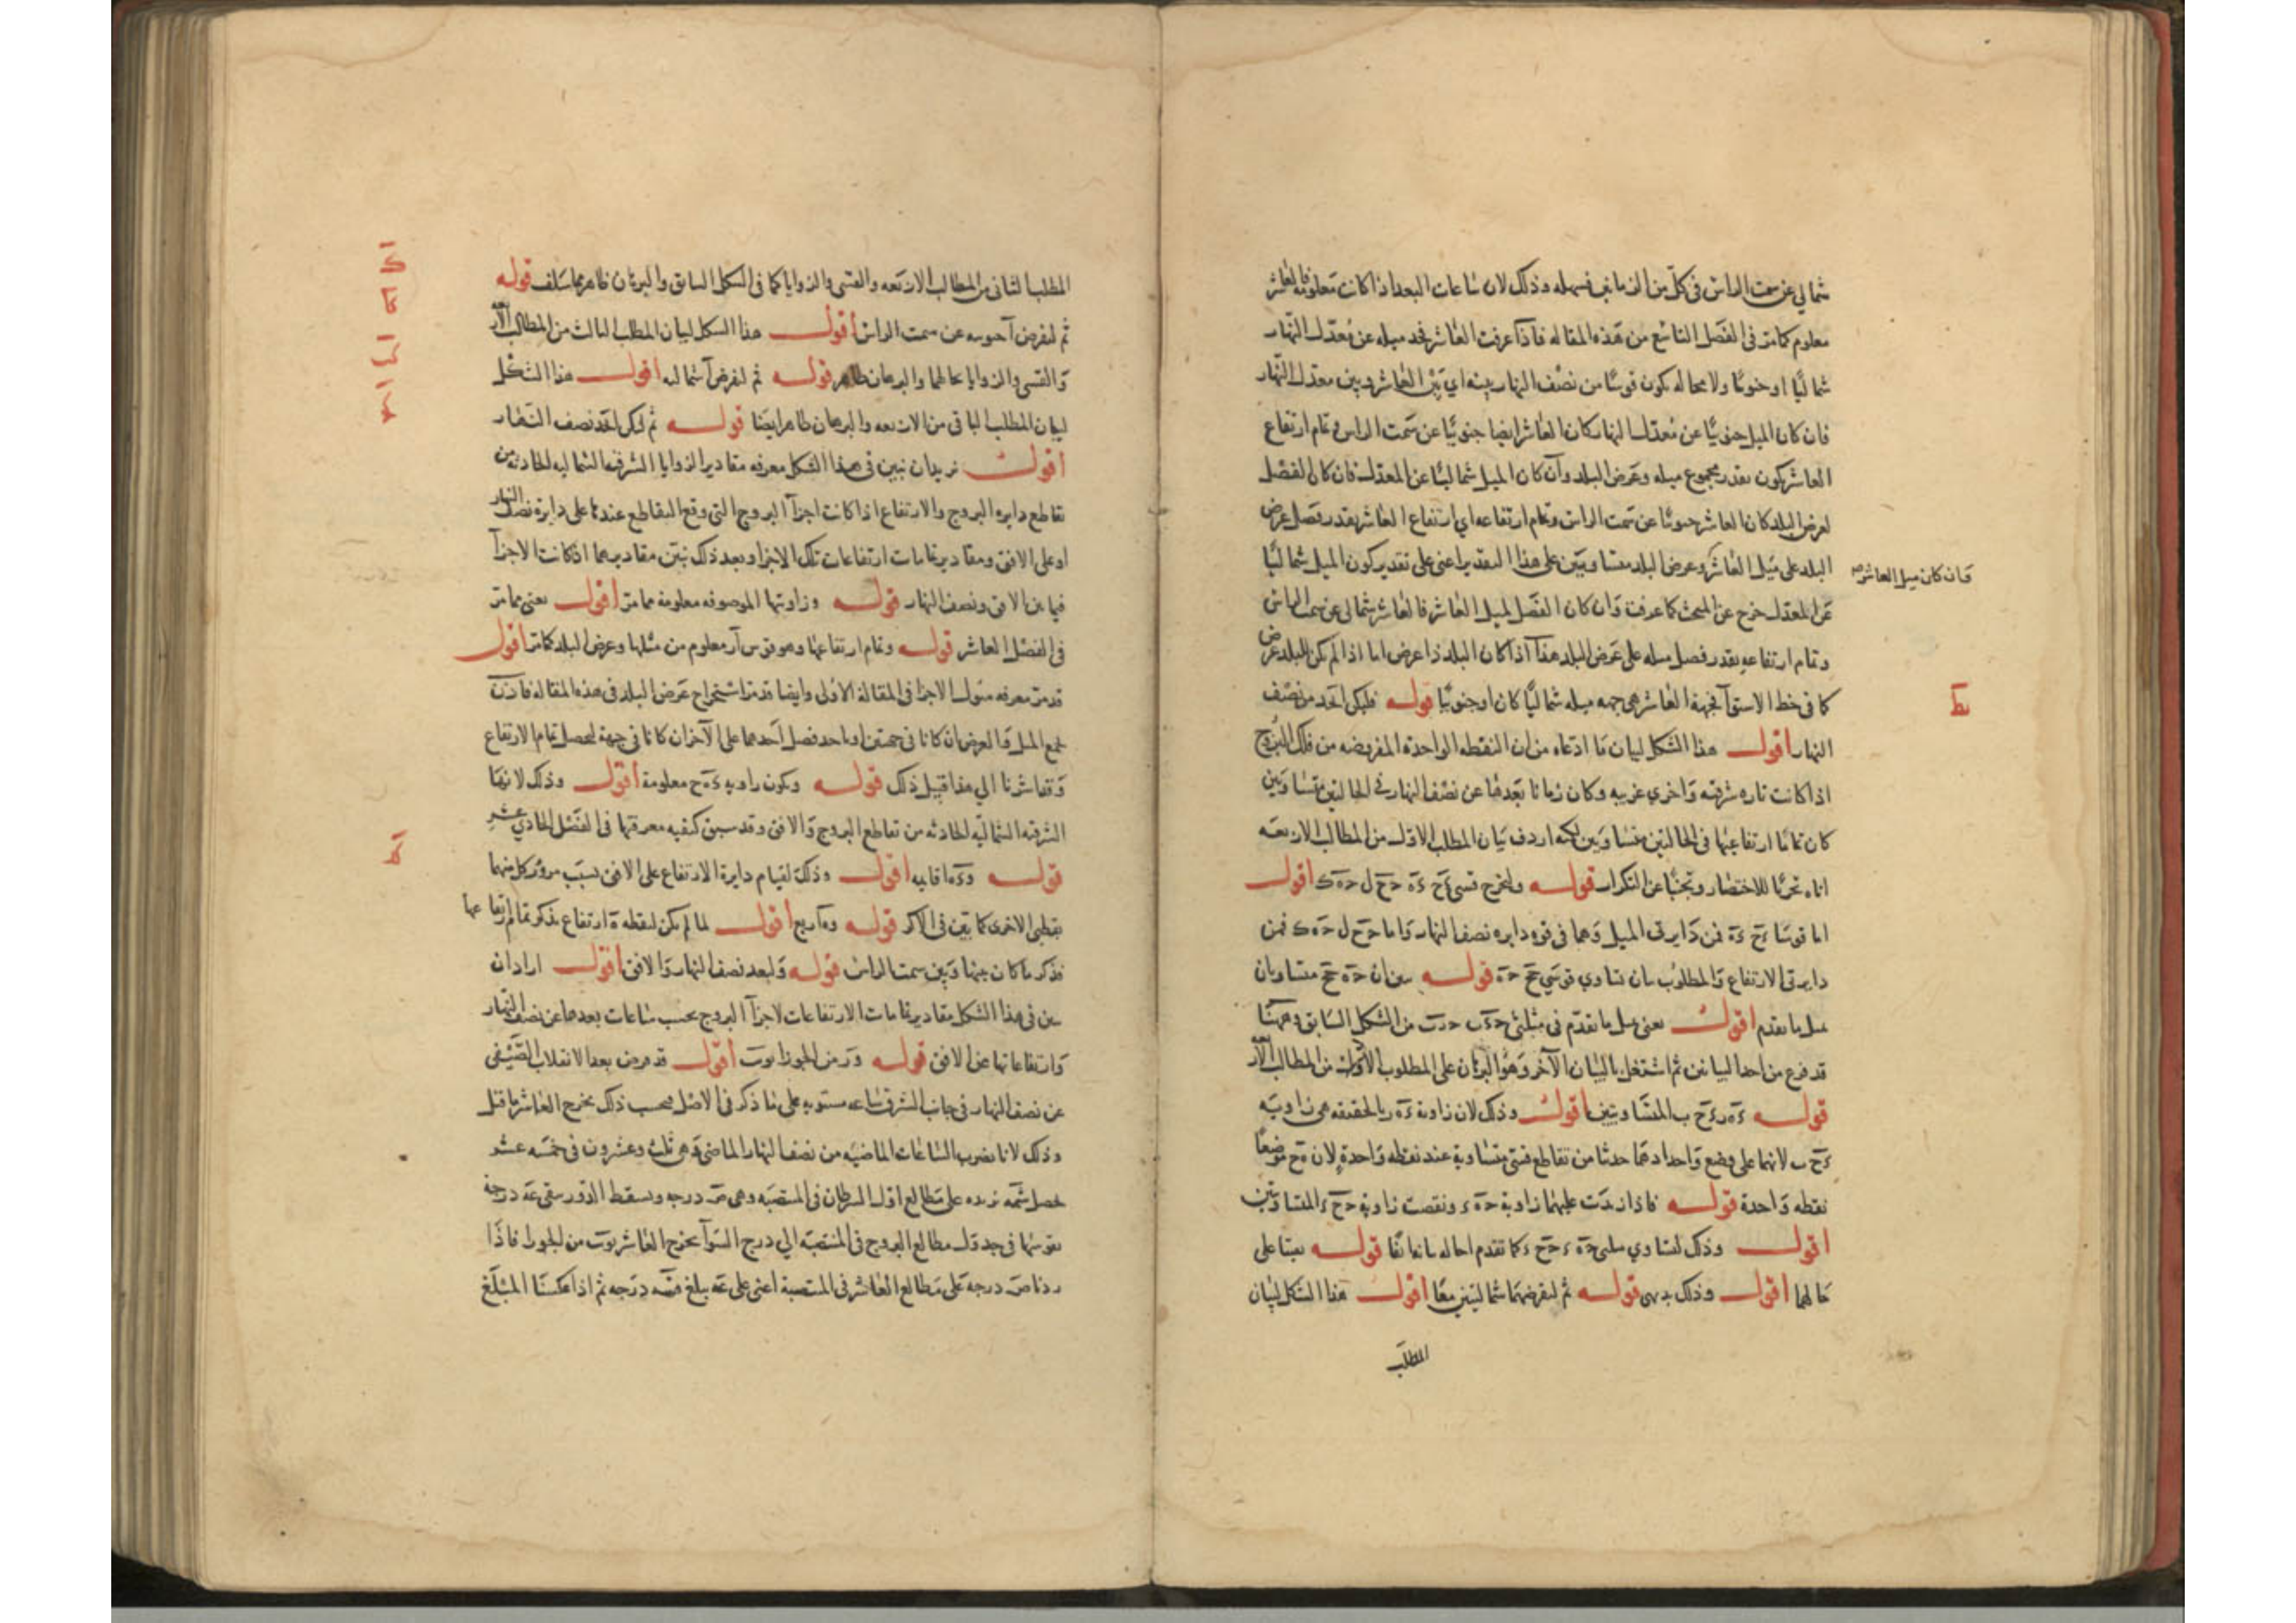 شمالي عن سمت الراس في كل من الزمانين فسهله وذلك لان ساعات البعد اذا كانت معلومة فالعاشر
معلوم كما مر في الفصل التاسع من هذه المقاله فاذا عرفت العاشر نجد ميله عن معدل النهار
شماليا او جنوبيا ولا محاله يكون قوسا من نصف النهار بينه اي بين العاشر وبين معدل النهار
فان كان الميل جنوبيا عن معدل النهار كان العاشر ايضا جنوبيا عن سمت الراس وتمام ارتفاع
العاشر يكون بقدر مجموع ميله وعرض البلد وان كان الميل شماليا عن المعدل فان كان الفضل
لعرض البلد كان العاشر جنوبيا عن سمت الراس وتمام ارتفاعه اي ارتفاع العاشر بقدر فضل عرض
البلد على ميل العاشر وعرض البلد متساويين على هذا التقدير اعني على تقدير كون الميل شماليا
فان كان ميل العاشر
عن المعدل خرج عن المبحث كما عرفت وان كان الفضل لميل العاشر فالعاشر شمالي عن سمت الراس
وتمام ارتفاعه بقدر فضل ميله على عرض البلد هذا اذا كان البلد ذا عرض اما اذا لم يكن للبلد عرض
كما في خط الاستوآ فجهة العاشر هي جهه ميله شماليا كان او جنوبيا قوله فليكن ا ح د من نصف
يط
النهار اقول هذا الشكل لبيان ما ادعاه من ان النقطه الواحدة المفروضه من فلك البروج
اذا كانت تاره شرقيه واخري غربيه وكان زمانا بعدها عن نصف النهار في الحالتين متساويين
كان تماما ارتفاعيها في الحالتين متساويين لكنه اردف بيان المطلب الاول من المطالب الاربعه
اياه تحريا للاختصار وتجنبا عن التكرار قوله ولنخرج قسي اقول
اما قوسا فمن دايرتي الميل وهما في قوه دايره نصف النهار واما فمن
دايرتي الارتفاع والمطلوب بيان تساوي قوسي قوله متساويان
بمثل ما تقدم اقول يعني بمثل ما تقدم في مثلثي من الشكل السابق وههنا
قد فرغ من احد البيانين ثم اشتغل بالبيان الآخر وهو البرهان على المطلوب الاول من المطالب الاربعه
قوله المتساويتين اقول وذلك لان زاوية بالحقيقه هي زاوية
لانهما على وضع واحد اذ هما حدثتا من تقاطع قسي متساوية عند نقطه واحدة لان موضعا
نقطه واحدة قوله فاذا زيدت عليهما زاوية ونقصت زاوية المتساويتين
اقول وذلك لتساوي مثلثي كما تقدم قوله بقيتا على
حالهما اقول وذلك بديهي قوله ثم لنفرضهما شماليتين معا اقول هذا الشكل لبيان
المطلب
المطلب الثاني من المطالب الاربعه والقسي والزوايا كما في الشكل السابق والبرهان ظاهر مما سلف قوله
ثم لنفرض آ جنوبيه عن سمت الراس اقول هذا الشكل لبيان المطلب الثالث من المطالب الاربعه
والقسي والزوايا بحالهما والبرهان ظاهر قوله ثم لنفرض آ شماليه اقول هذا الشكل
لبيان المطلب الباقي من الاربعه والبرهان ظاهر ايضا قوله ثم ليكن نصف النهار
اقول نريد ان نبين في هذا الشكل معرفه مقادير الزوايا الشرقيه الشماليه الحادثه من
تقاطع دايره البروج والارتفاع اذا كانت اجزآ البروج التي وقع التقاطع عندها على دايرة نصف النهار
او على الافق ومقادير تمامات ارتفاعات تلك الاجزاو بعد ذلك نبين مقاديرهما اذ كانت الاجزآ
فيما بين الافق ونصف النهار قوله وزاويتها الموصوفه معلومة مما مر اقول يعني مما مر
في الفصل العاشر قوله وتمام ارتفاعها وهو قوس آر معلوم من ميلها وعرض البلد كما مر اقول
قد مر معرفه ميول الاجزا في المقالة الاولى وايضا قد مر استخراج عرض البلد في هذه المقاله فاذن
نجمع الميل والعرض ان كانا في جهتين او ناخذ فضل احدهما على الآخر ان كانا في جهة ليحصل تمام الارتفاع
وقد اشرنا الي هذا قبيل ذلك قوله وتكون زاويه معلومة اقول وذلك لانها
الشرقيه الشماليه الحادثه من تقاطع البروج والافق وقد سبق كيفيه معرفتها في الفصل الحادي عشر
قوله قايمه اقول وذلك لقيام دايرة الارتفاع على الافق بسبب مرور كل منهما
بقطبي الاخرى كما بين في الاكر قوله ربع اقول لما لم يكن لنقطة ارتفاع يذكر تمام ارتفاعها
فذكر ما كان بينها وبين سمت الراس قوله ولبعد نصف النهار والافق اقول اراد ان
يبين في هذا الشكل مقادير تمامات الارتفاعات لاجزآ البروج بحسب ساعات بعدها عن نصف النهار
وارتفاعاتها عن الافق قوله من الجوزا اقول قد فرض بعد الانقلاب الصيفي
عن نصف النهار في جانب الشرق ساعه مستويه على ما ذكر في الاصل فبحسب ذلك يخرج العاشر ما قيل
وذلك لانا نضرب الساعات الماضيه من نصف النهار الماضي وهي ثلث وعشرون في خمسه عشر
يحصل شمه نزيده على مطالع اول السرطان في المنتصبه وهي ص درجه ونسقط الدور يبقى عه درجة
نقوسها في جدول مطالع البروج في المنتصبه الي درج السوآ يخرج العاشر من الجوزا فاذا
زدنا ص درجه على مطالع العاشر في المنتصبة اعني على عه يبلغ قسه درجه ثم اذا عكسنا المبلغ